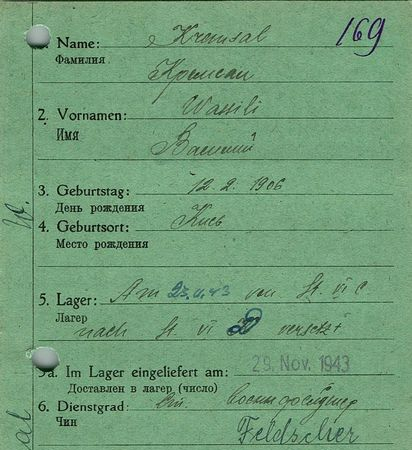 169
1. Name: Kremsal
Фамилия Кремсал
2. Vornamen: Wassili
Имя Василий
3. Geburtstag: 12. 2. 1906
День рождения
4. Geburtsort: Киев
Место рождения
5. Lager: Am 23.11.43 von St. VI C
Лагер nach St. VI D versetzt
5a. Im Lager eingeliefert am: 29. Nov. 1943
Доставлен в лагер (число)
6. Dienstgrad:
Чин Feldscher